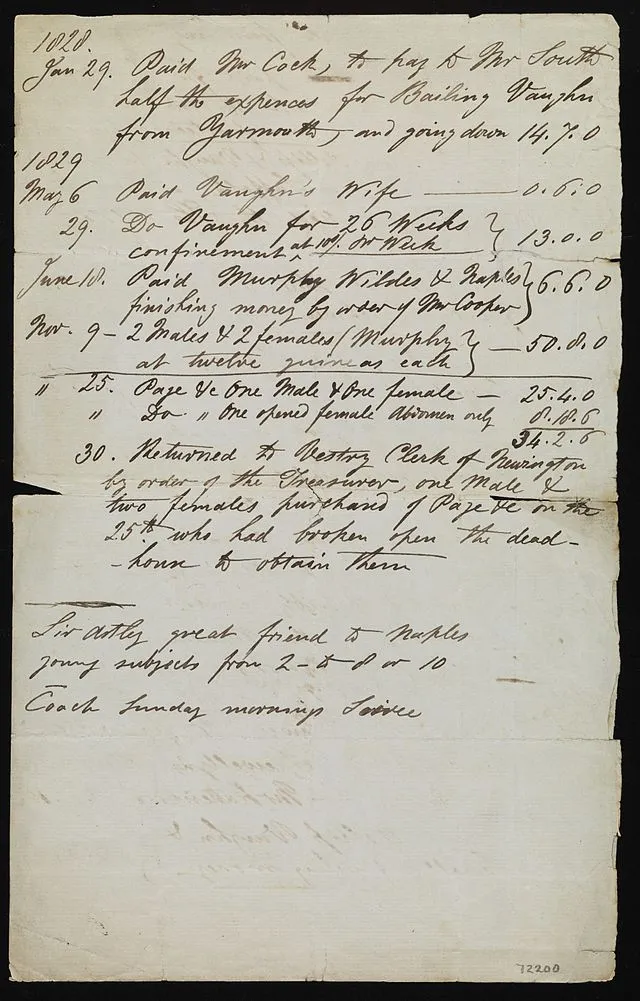 1828.
Jan 29. Paid Mr Cock, to pay to Mr South
half the expences for Bailing Vaughn
from Yarmouth, and going down 14.7.0
1829
May 6 Paid Vaughn's Wife — 0.6.0
29. Do Vaughn for 26 Weeks
confinement at 10/. Per Week } 13.0.0
June 18. Paid Murphy Wildes & Naples
finishing money by order of Mr Cooper } 6.6.0
Nov. 9 – 2 Males & 2 females (Murphy
at twelve guineas each } — 50.8.0
" 25. Page &c One Male & One female — 25.4.0
" Do " One opened female Abdomen only 8.18.6
34.2.6
30. Returned to Vestry Clerk of Newington
by order of the Treasurer, one Male &
two females purchased of Page &c on the
25th who had broken open the dead-
-house to obtain them
Sir Astley great friend to Naples
young subjects from 2 – to 8 or 10
Coach Sunday mornings Soiree
72200